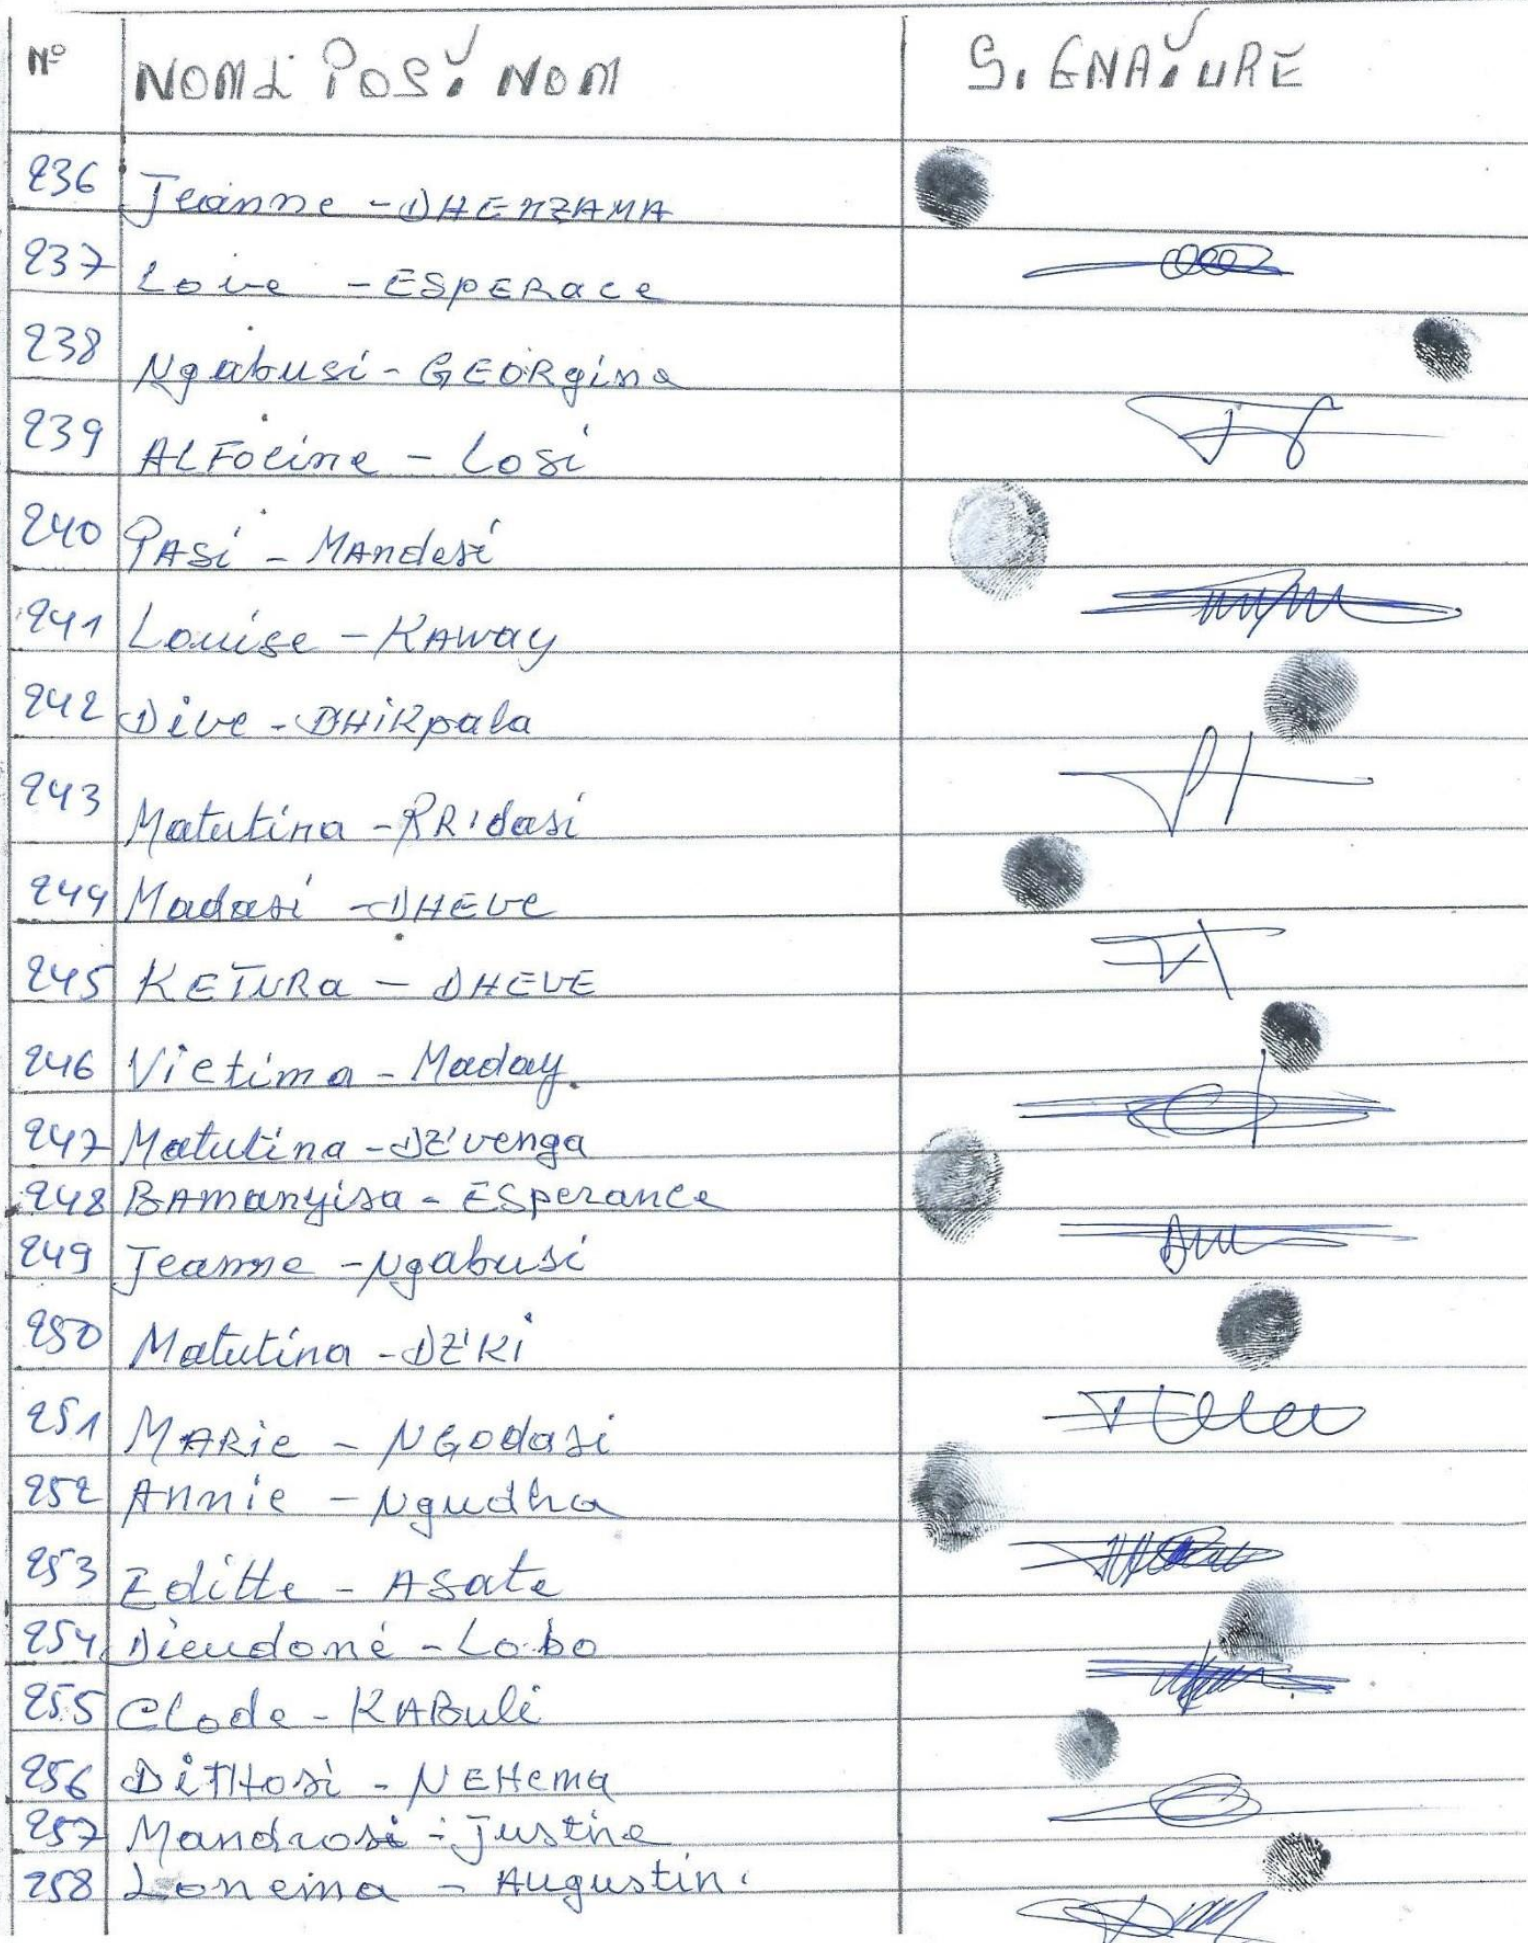 Nº NOM & POST NOM SIGNATURE
236 Jeanne - DHENZAMA
237 Love - ESPERace
238 Ngabusi - GEORgina
239 ALFocine - Losi
240 PASi - MAndesi
241 Louise - KAWay
242 Dive - DHiKpala
243 Matutina - RRidasi
244 Madasi - DHEVe
245 KETURa - DHEVE
246 Victima - Maday
247 Matutina - DZ'venga
248 BAmanyisa - ESperance
249 Jeanne - Ngabusi
250 Matutina - DZ'Ki
251 MARie - NGOdasi
252 Annie - Ngudha
253 Editte - Asate
254 Dieudoné - Lobo
255 Clode - KABuli
256 DiTHosi - NEHema
257 Mandrosi - Justine
258 Lonema - Augustin.